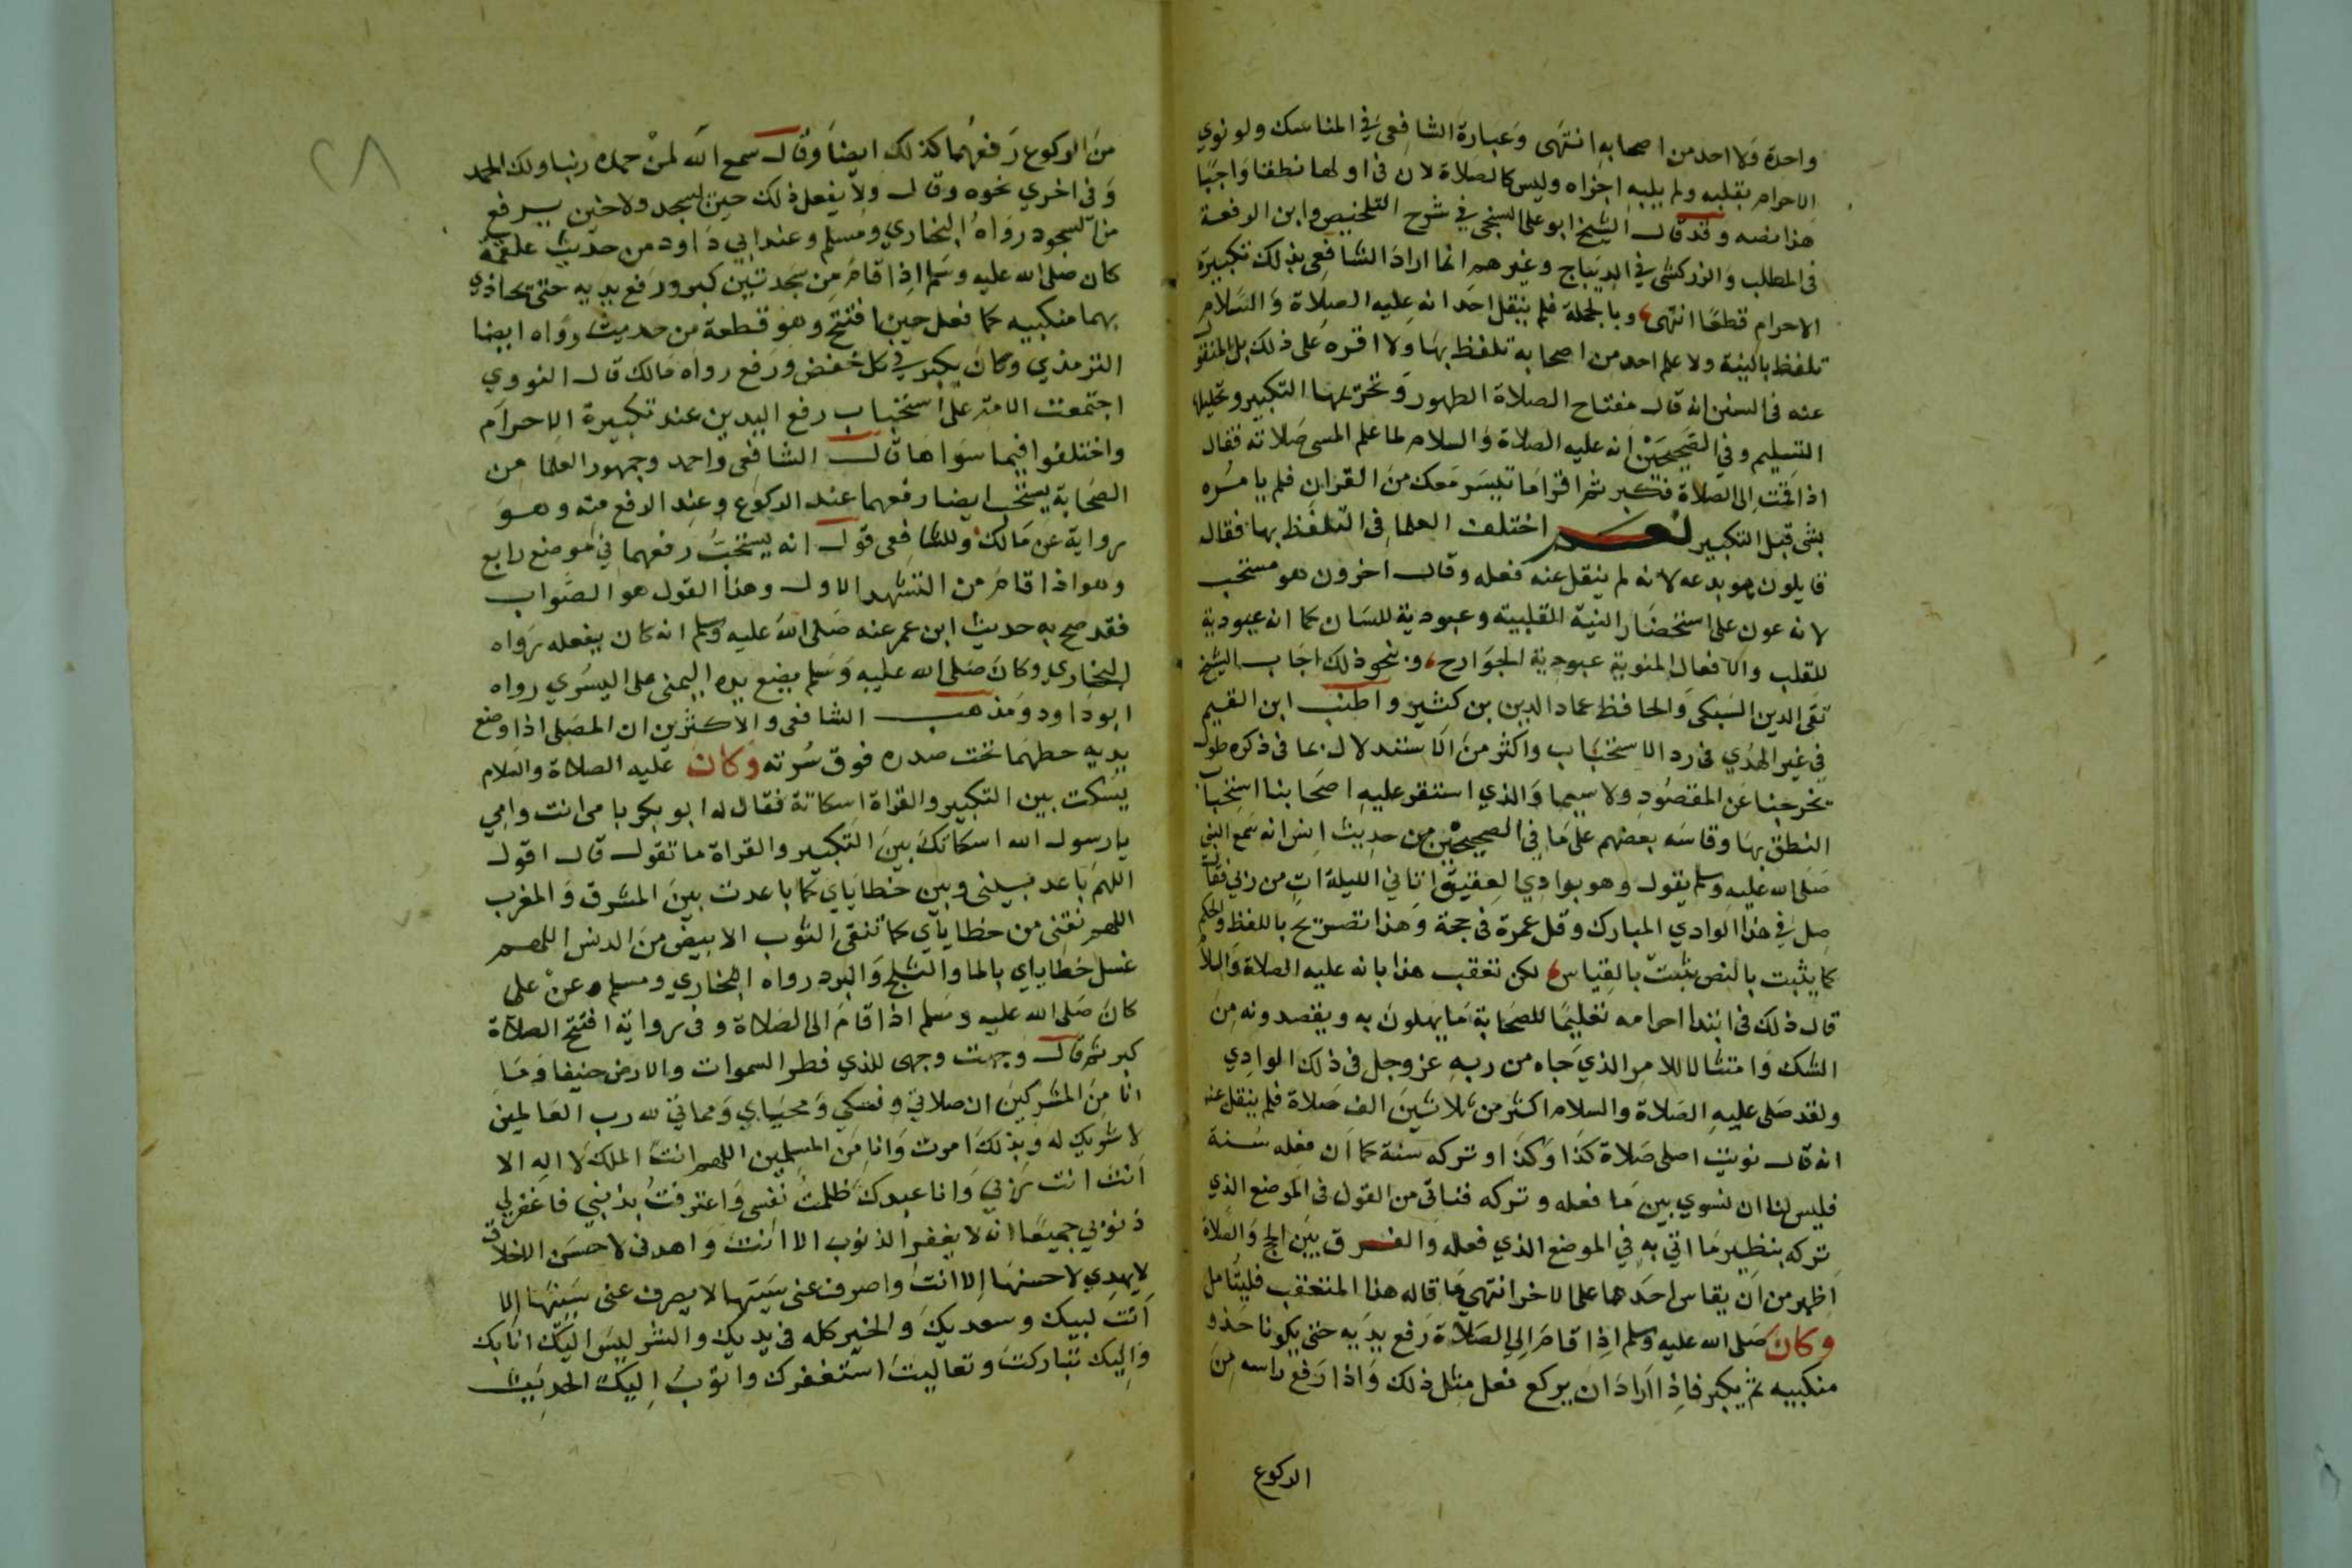 واحدة ولا احد من اصحابه انتهى وعبارة الشافعى في المناسك ولو نوي
الاحرام بقلبه ولم يلبه اجزاه وليس كالصلاة لان في اولها نطقا واجبا
هذا نصه وقد قال الشيخ ابو على السنجى في شرح التلخيص وابن الرفعة
في المطلب والزركشى في الديباج وغيرهم انما اراد الشافعى بذلك تكبيرة
الاحرام قطعا انتهى وبالجملة فلم ينقل احد انه عليه الصلاة والسلام
تلفظ بالنية ولا علم احد من اصحابه تلفظ بها ولا اقره على ذلك بل المنقول
عنه في السنن انه قال مفتاح الصلاة الطهور وتحريمها التكبير وتحليلها
التسليم وفي الصحيحين انه عليه الصلاة والسلام لما علم المسى صلاته فقال
اذا قمت الى الصلاة فكبر ثم اقرا ما تيسر معك من القران فلم يامره
بشى قبل التكبير نعم اختلف العلما في التلفظ بها فقال
قايلون هو بدعه لانه لم ينقل عنه فعله وقال اخرون هو مستحب
لانه عون على استحضار النية القلبية وعبودية للسان كما انه عبودية
للقلب والافعال المنوية عبودية الجوارح وبنحو ذلك اجاب الشيخ
تقى الدين السبكى والحافظ عماد الدين بن كثير واطنب ابن القيم
في غير الهدي في رد الاستحباب واكثر من الاستدلال بما في ذكره طول
يخرجنا عن المقصود ولا سيما والذي استقر عليه اصحابنا استحباب
النطق بها وقاسه بعضهم على ما في الصحيحين من حديث انس انه سمع النبى
صلى الله عليه وسلم يقول وهو بوادي العقيق اتاني الليلة ات من ربي فقال
صل في هذا الوادي المبارك وقل عمرة في حجة وهذا تصريح باللفظ والحكم
كما يثبت بالنص يثبت بالقياس لكن تعقب هذا بانه عليه الصلاة والسلام
قال ذلك في ابتدا احرامه تعليما للصحابة ما يهلون به ويقصدونه من
النسك وامتثالا للامر الذي جاه من ربه عز وجل في ذلك الوادي
ولقد صلى عليه الصلاة والسلام اكثر من ثلاثين الف صلاة فلم ينقل عنه
انه قال نويت اصلى صلاة كذا وكذا وتركه سنة كما ان فعله سنة
فليس لنا ان نسوي بين ما فعله وتركه فناتى من القول في الموضع الذي
تركه بنظير ما اتى به في الموضع الذي فعله والفرق بين الحج والصلاة
اظهر من ان يقاس احدهما على الاخر انتهى ما قاله هذا المتعقب فليتامل
وكان صلى الله عليه وسلم اذا قام الى الصلاة رفع يديه حتى يكونا حذو
منكبيه ثم يكبر فاذا اراد ان يركع فعل مثل ذلك واذا رفع راسه من
الركوع
٢٨
من الركوع رفعهما كذلك ايضا وقال سمع الله لمن حمده ربنا ولك الحمد
وفي اخري نحوه وقال ولا يفعل ذلك حين يسجد ولا حين يرفع
من السجود رواه البخاري ومسلم وعند ابي داود من حديث علقمة
كان صلى الله عليه وسلم اذا قام من سجدتين كبر ورفع يديه حتى يحاذي
بهما منكبيه كما فعل حين افتتح وهو قطعة من حديث رواه ايضا
الترمذي وكان يكبر في كل خفض ورفع رواه مالك قال النووي
اجتمعت الامة على استحباب رفع اليدين عند تكبيرة الاحرام
واختلفوا فيما سواها قال الشافعى واحمد وجمهور العلما من
الصحابة يستحب ايضا رفعهما عند الركوع وعند الرفع منه وهو
رواية عن مالك وللشافعى قول انه يستحب رفعهما في موضع رابع
وهو اذا قام من التشهد الاول وهذا القول هو الصواب
فقد صح به حديث ابن عمر عنه صلى الله عليه وسلم انه كان يفعله رواه
البخاري وكان صلى الله عليه وسلم يضع يده اليمنى على اليسري رواه
ابو داود ومذهب الشافعى والاكثرين ان المصلى اذا وضع
يديه حطهما تحت صدره فوق سرته وكان عليه الصلاة والسلام
يسكت بين التكبير والقراة اسكاتة فقال له ابو بكر بامى انت وامي
يا رسول الله اسكاتك بين التكبير والقراة ما تقول قال اقول
اللهم باعد بينى وبين خطاياي كما باعدت بين المشرق والمغرب
اللهم نقنى من خطاياي كما تنقى الثوب الابيض من الدنس اللهم
غسل خطاياي بالما والثلج والبرد رواه البخاري ومسلم وعن على
كان صلى الله عليه وسلم اذا قام الى الصلاة وفي رواية افتتح الصلاة
كبر ثم قال وجهت وجهى للذي فطر السموات والارض حنيفا وما
انا من المشركين ان صلاتي ونسكي ومحياي ومماتي لله رب العالمين
لا شريك له وبذلك امرت وانا من المسلمين اللهم انت الملك لا اله الا
انت انت ربي وانا عبدك ظلمت نفسى واعترفت بذنبي فاغفرلي
ذنوبي جميعا انه لا يغفر الذنوب الا انت واهدنى لاحسن الاخلاق
لا يهدي لاحسنها الا انت واصرف عنى سيئتها لا يصرف عنى سيئتها الا
انت لبيك وسعديك والخير كله في يديك والشر ليس اليك انا بك
واليك تباركت وتعاليت استغفرك واتوب اليك الحديث